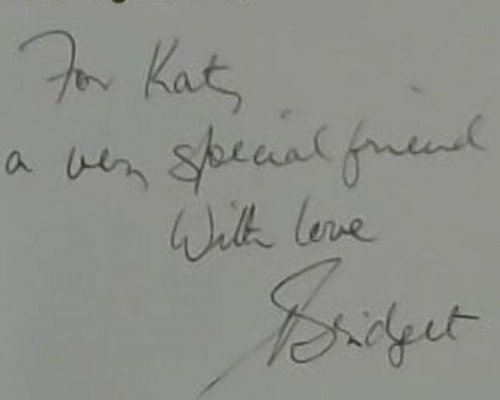 For Katy
a very special friend
With love
Bridget